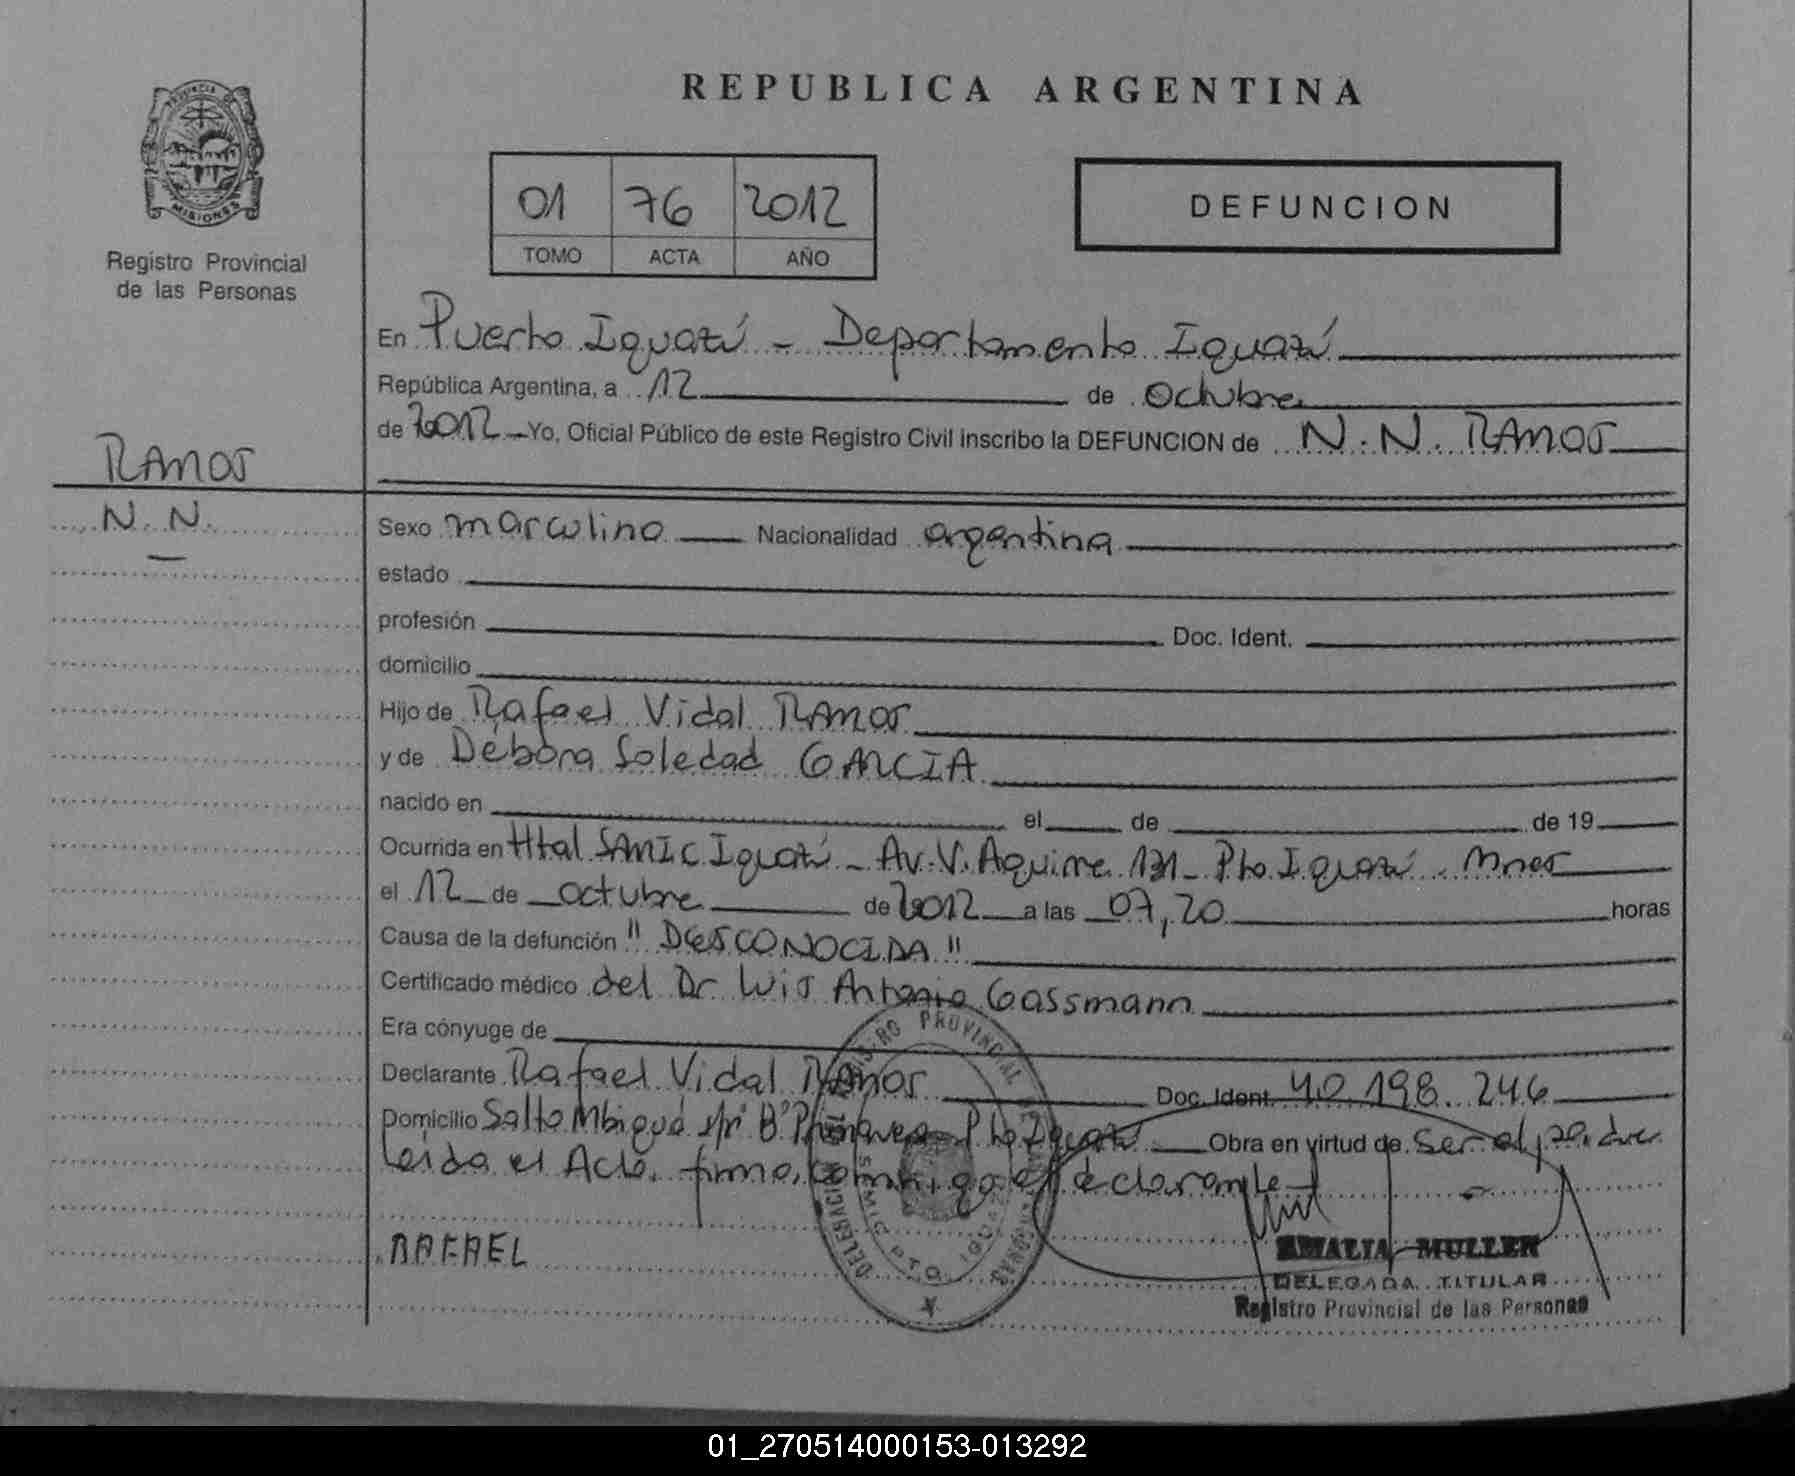 REPUBLICA ARGENTINA
PROVINCIA DE
MISIONES
Registro Provincial
de las Personas
01 76 2012
TOMO ACTA AÑO
DEFUNCION
En Puerto Iguazú - Departamento Iguazú
República Argentina, a 12 de octubre
de 2012 Yo, Oficial Público de este Registro Civil inscribo la DEFUNCION de N. N. RAMOS
RAMOS
N. N.
Sexo masculino Nacionalidad argentina
estado
profesión Doc. Ident.
domicilio
Hijo de Rafael Vidal RAMOS
y de Débora Soledad GARCIA
nacido en el de de 19
Ocurrida en Htal SAMIC Iguazú - Av. V. Aguirre 131 - Pto Iguazú - Mnes
el 12 de octubre de 2012 a las 07,20 horas
Causa de la defunción "DESCONOCIDA"
Certificado médico del Dr Luis Antonio Gassmann
Era cónyuge de
Declarante Rafael Vidal RAMOS Doc. Ident. 40.198.246
Domicilio Salto Mbigua s/nº Bº Primavera Pto Iguazú Obra en virtud de ser el padre
Leída el Acta, firma conmigo el declarante
RAFAEL
REGISTRO PROVINCIAL DE LAS PERSONAS
DELEGACION
PTO. IGUAZU
AMALIA MULLER
DELEGADA TITULAR
Registro Provincial de las Personas
01_270514000153-013292